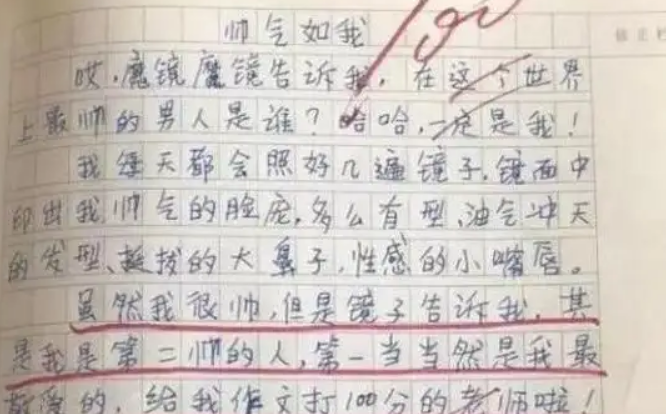 帅气如我
90
哎,魔镜魔镜告诉我,在这个世界
上最帅的男人是谁?哈哈,一定是我!
我每天都会照好几遍镜子,镜面中
印出我帅气的脸庞,多么有型,油气冲天
的发型、挺拔的大鼻子,性感的小嘴唇。
虽然我很帅,但是镜子告诉我,其
是我是第二帅的人,第一当当然是我最
的,给我作文打100分的老师啦!